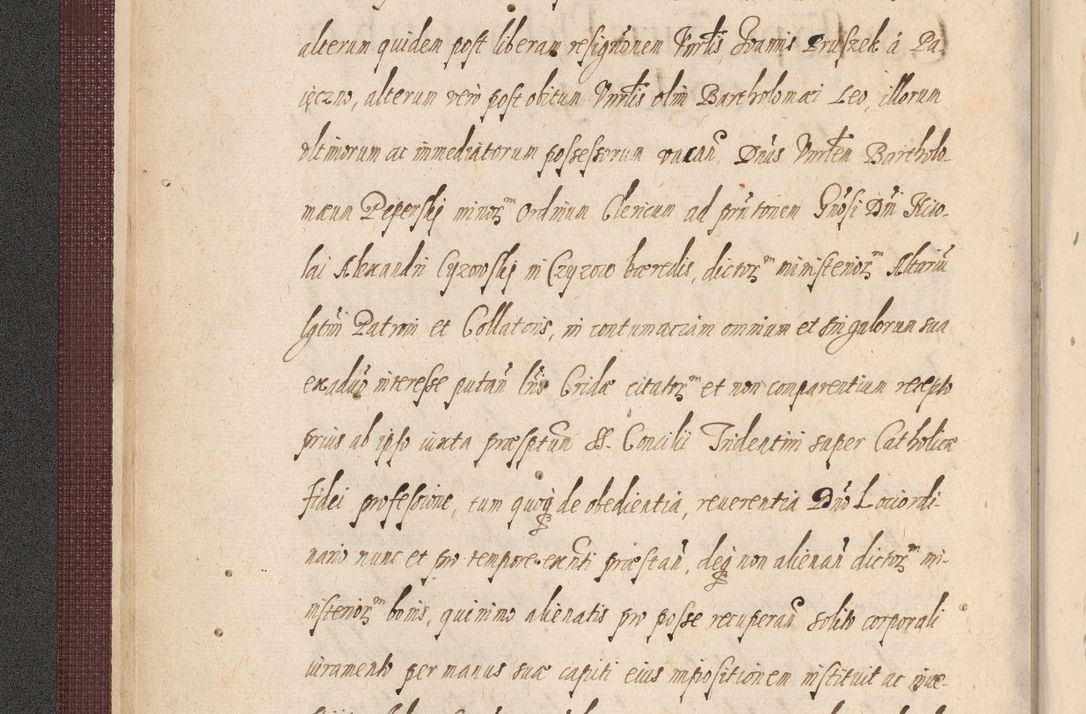 alterum quidem post liberam resignõnem Vnrlis Joannis Pruszek á Pa-
ięczno, alterum vero post obitum Vnrlis olim Bartholomæi Leo, illorum
vltimorum ac immediatorum possessorum vacañ, Dñus Vnrlem Bartholo-
mæum Peperskj minor͂m Ordinum Clericum ad prñtõnem Gñosi Dñi Nico-
lai Alexandri Cyzowskj in Czyzow hæredis, dictor͂m ministerior͂m Altariũ
lgtm̃ Patroni et Collatoris, in contumaciam omnium et singulorum sua
ex aduõ interesse putañ lrĩs Cridæ citator͂m et non comparentium recepto
prius ab ipso iuxta præscptum SS. Concilii Tridentini super Catholicæ
fidei professione, tum quoq de obedientia, reuerentia Dño Lociordi-
nario nunc et pro tempore exñti præstañ, deq non alienañ dictor͂m mi-
nisterior͂m bonis, quinimo alienatis pro posse recuperañ solito corporali
iuramento per manus suæ capiti eius impositionem instituit ac inue-